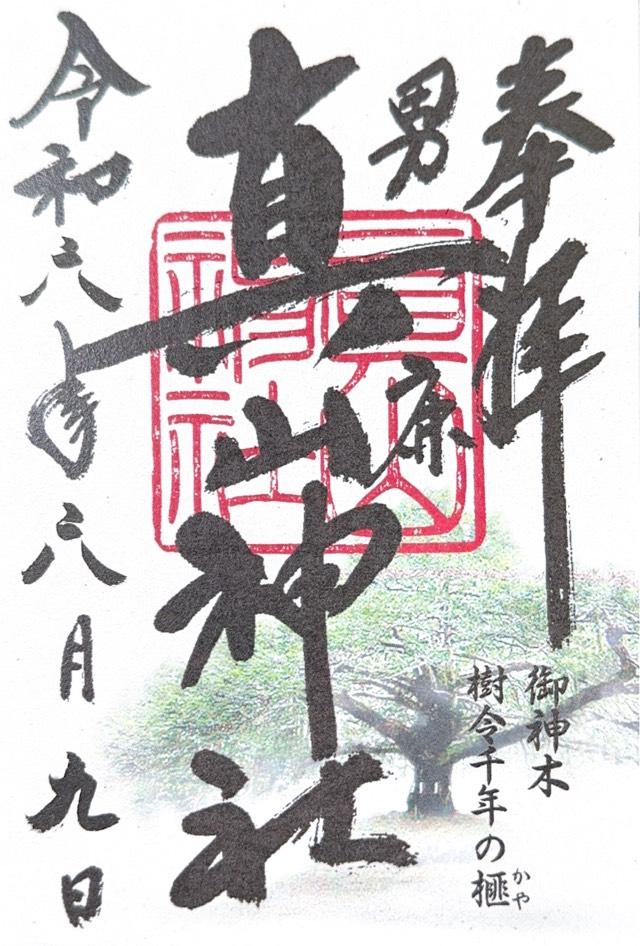 奉拝
男鹿
真山神社
令和六年六月九日
真山
神社
御神木
樹令千年の榧
かや